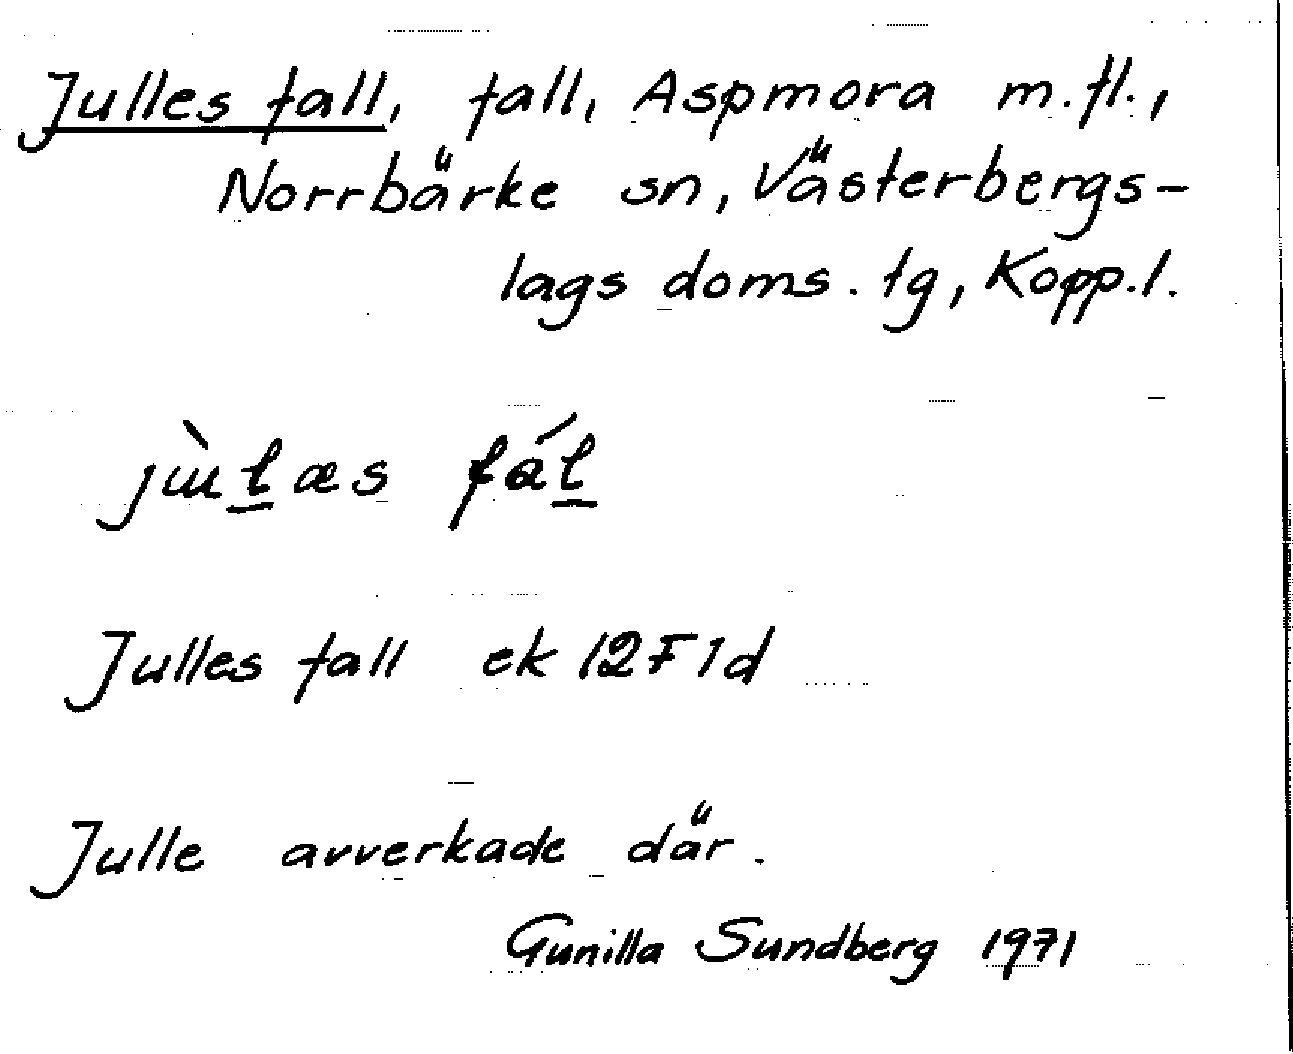 Julles fall, fall, Aspmora m.fl.,
Norrbärke sn, Västerbergs-
lags doms. tg, Kopp.l.
jɯ̀l̲æs fál̲
Julles fall ek 12F1d
Julle avverkade där.
Gunilla Sundberg 1971